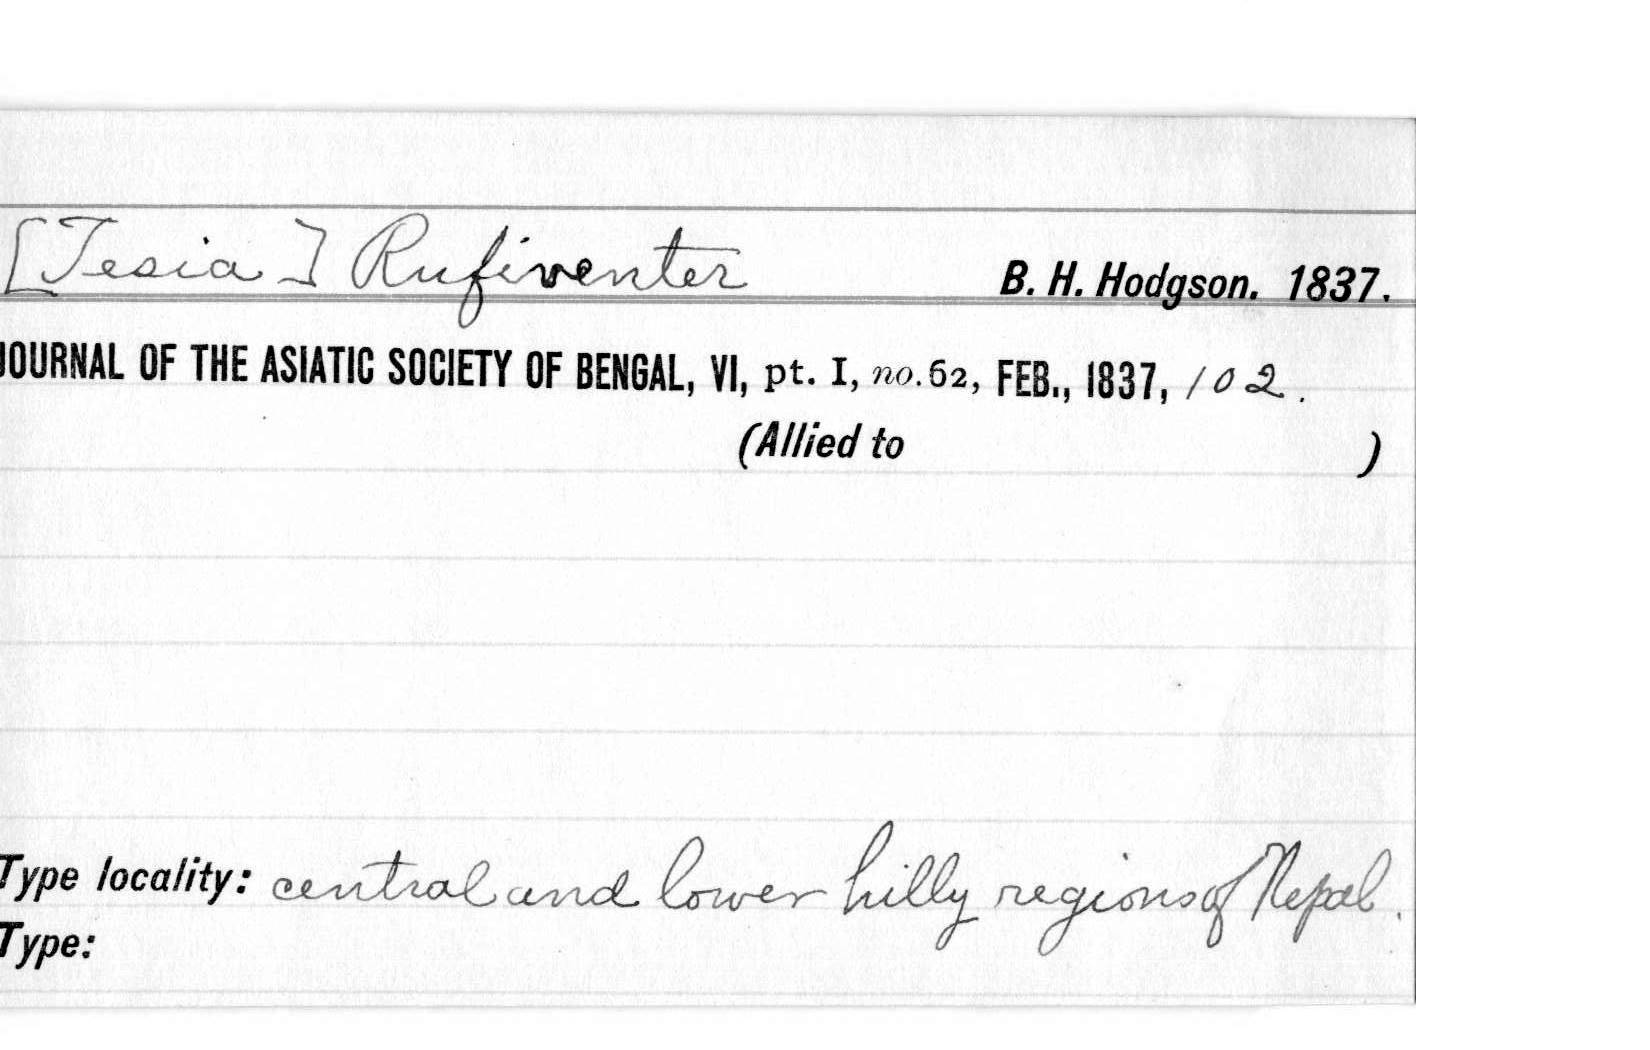 [Tesia] Rufiventer B. H. Hodgson. 1837.
JOURNAL OF THE ASIATIC SOCIETY OF BENGAL, VI, pt. I, no. 62, FEB., 1837, 102.
(Allied to )
Type locality: central and lower hilly regions of Nepal.
Type: